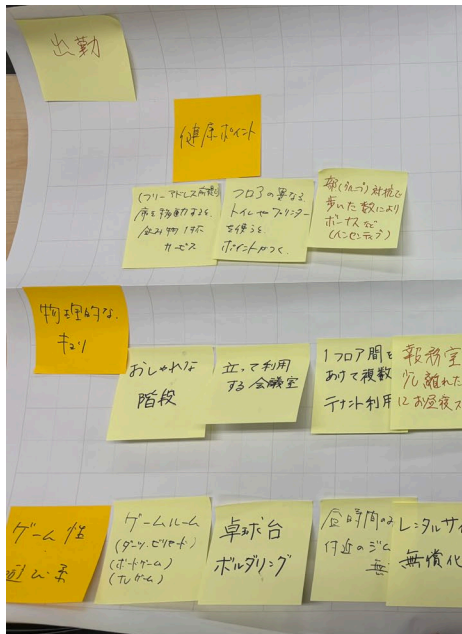 出勤
健康ポイント
(フリーアドレス前提)
席を移動すると、
飲み物1杯
サービス
フロアの異なる、
トイレやプリンター
を使うと
ポイントがつく。
部(グループ)対抗で
歩いた数により
ボーナスなど
(インセンティブ)
物理的な、
おしゃれな
階段
立って利用
する会議室
1フロア間を
あけて複数
テナント利用
執務室
少し離れた
にお昼寝ス
ゲーム性
遊び系
ゲームルーム
(ダーツ・ビリヤード)
(ボードゲーム)
(テレビゲーム)
卓球台
ボルダリング
昼時間のみ
付近のジム
無
レンタルサイ
無償化